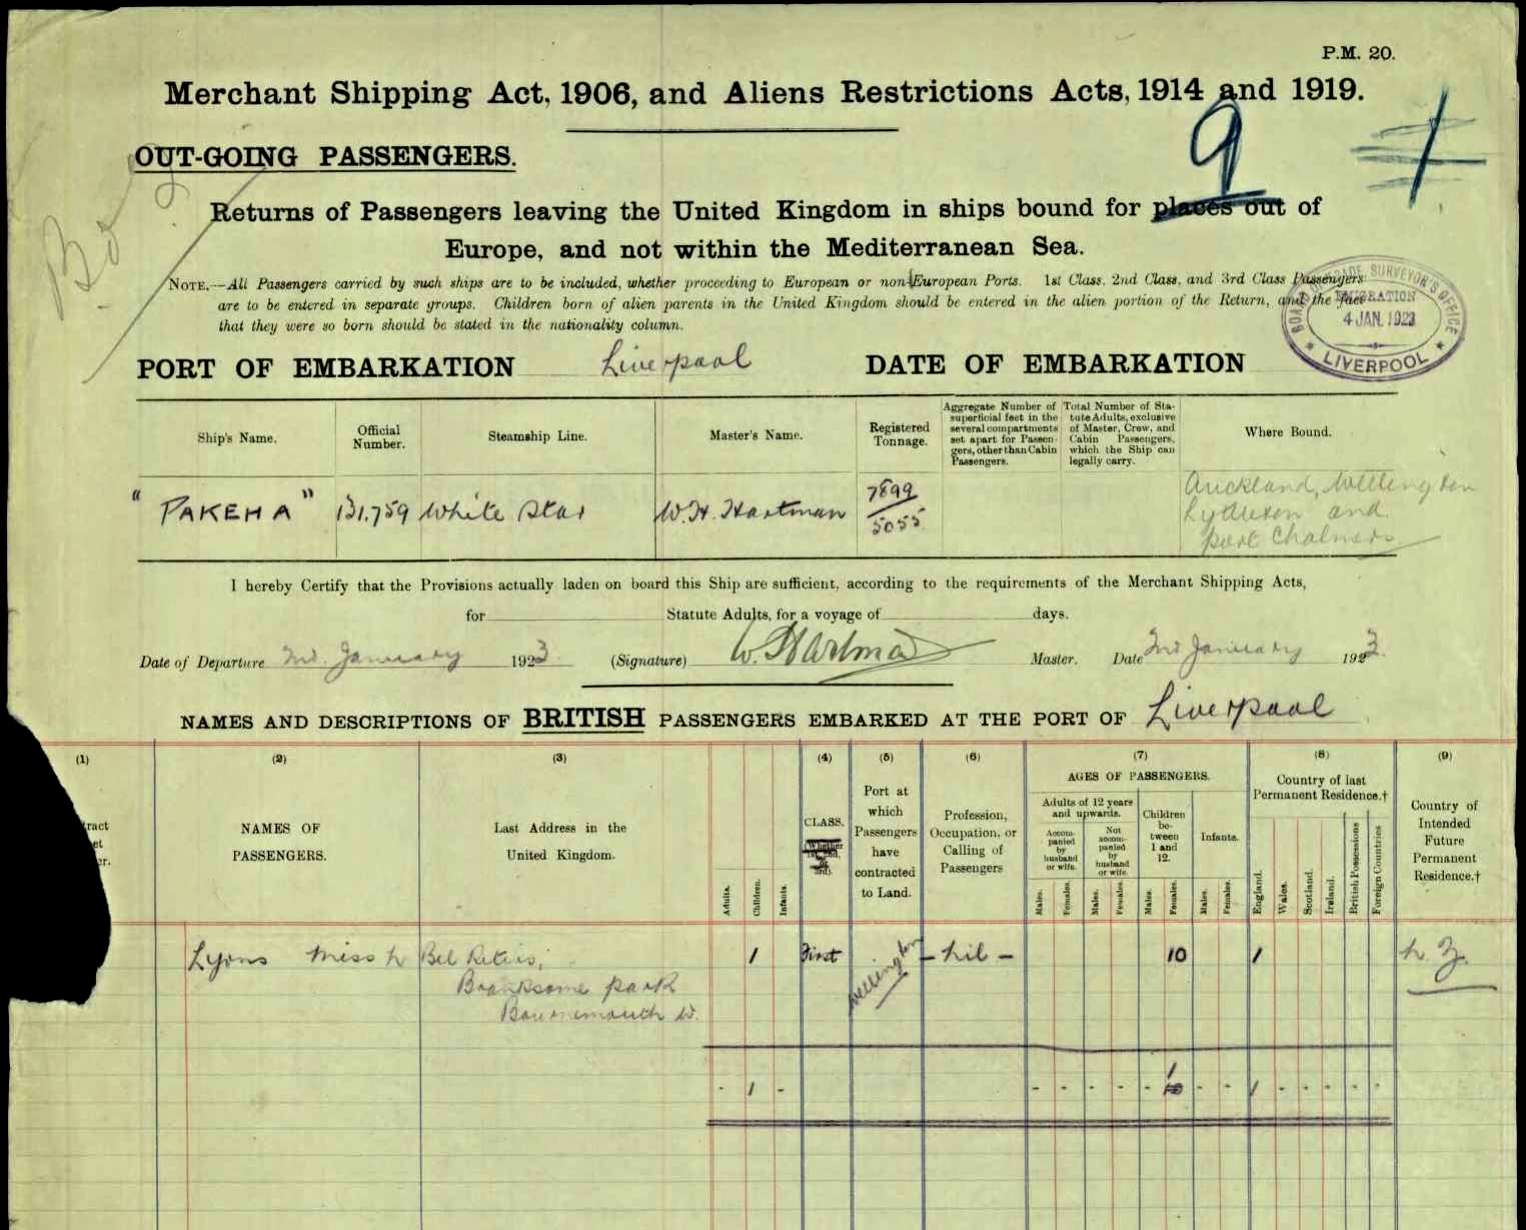 P.M. 20.
Merchant Shipping Act, 1906, and Aliens Restrictions Acts, 1914 and 1919.
9
OUT-GOING PASSENGERS.
Returns of Passengers leaving the United Kingdom in ships bound for places out of
Europe, and not within the Mediterranean Sea.
NOTE.—All Passengers carried by such ships are to be included, whether proceeding to European or non-European Ports. 1st Class, 2nd Class, and 3rd Class Passengers
are to be entered in separate groups. Children born of alien parents in the United Kingdom should be entered in the alien portion of the Return, and the fact
that they were so born should be stated in the nationality column.
BOARD OF TRADE SURVEYOR'S OFFICE
EMIGRATION
4 JAN. 1923
LIVERPOOL
PORT OF EMBARKATION Liverpool DATE OF EMBARKATION
Ship's Name. Official Number. Steamship Line. Master's Name. Registered Tonnage. Aggregate Number of superficial feet in the several compartments set apart for Passengers, other than Cabin Passengers. Total Number of Statute Adults, exclusive of Master, Crew, and Cabin Passengers, which the Ship can legally carry. Where Bound.
"PAKEHA" 131,759 White Star W. H. Hartman 7899/5055 Auckland, Wellington
Lyttleton and
Port Chalmers
I hereby Certify that the Provisions actually laden on board this Ship are sufficient, according to the requirements of the Merchant Shipping Acts,
for Statute Adults, for a voyage of days.
Date of Departure January 1923 (Signature) W. Hartman Master. Date January 1923.
NAMES AND DESCRIPTIONS OF BRITISH PASSENGERS EMBARKED AT THE PORT OF Liverpool
(1) (2) (3) (4) (5) (6) (7) (8) (9)
NAMES OF PASSENGERS.
Last Address in the United Kingdom.
Adults. Children. Infants.
CLASS.
Port at which Passengers have contracted to Land.
Profession, Occupation, or Calling of Passengers
AGES OF PASSENGERS.
Adults of 12 years and upwards.
Accompanied by husband or wife.
Not accompanied by husband or wife.
Children between 1 and 12.
Infants.
Males. Females. Males. Females. Males. Females. Males. Females.
Country of last Permanent Residence.†
England. Wales. Scotland. Ireland. British Possessions Foreign Countries
Country of Intended Future Permanent Residence.†
Lyons Miss Bel 1 First Wellington - nil - 10 1 N. Z.
Branksome Park
Bournemouth W.
- 1 - - - - - - 1 - - 1 - - - - -